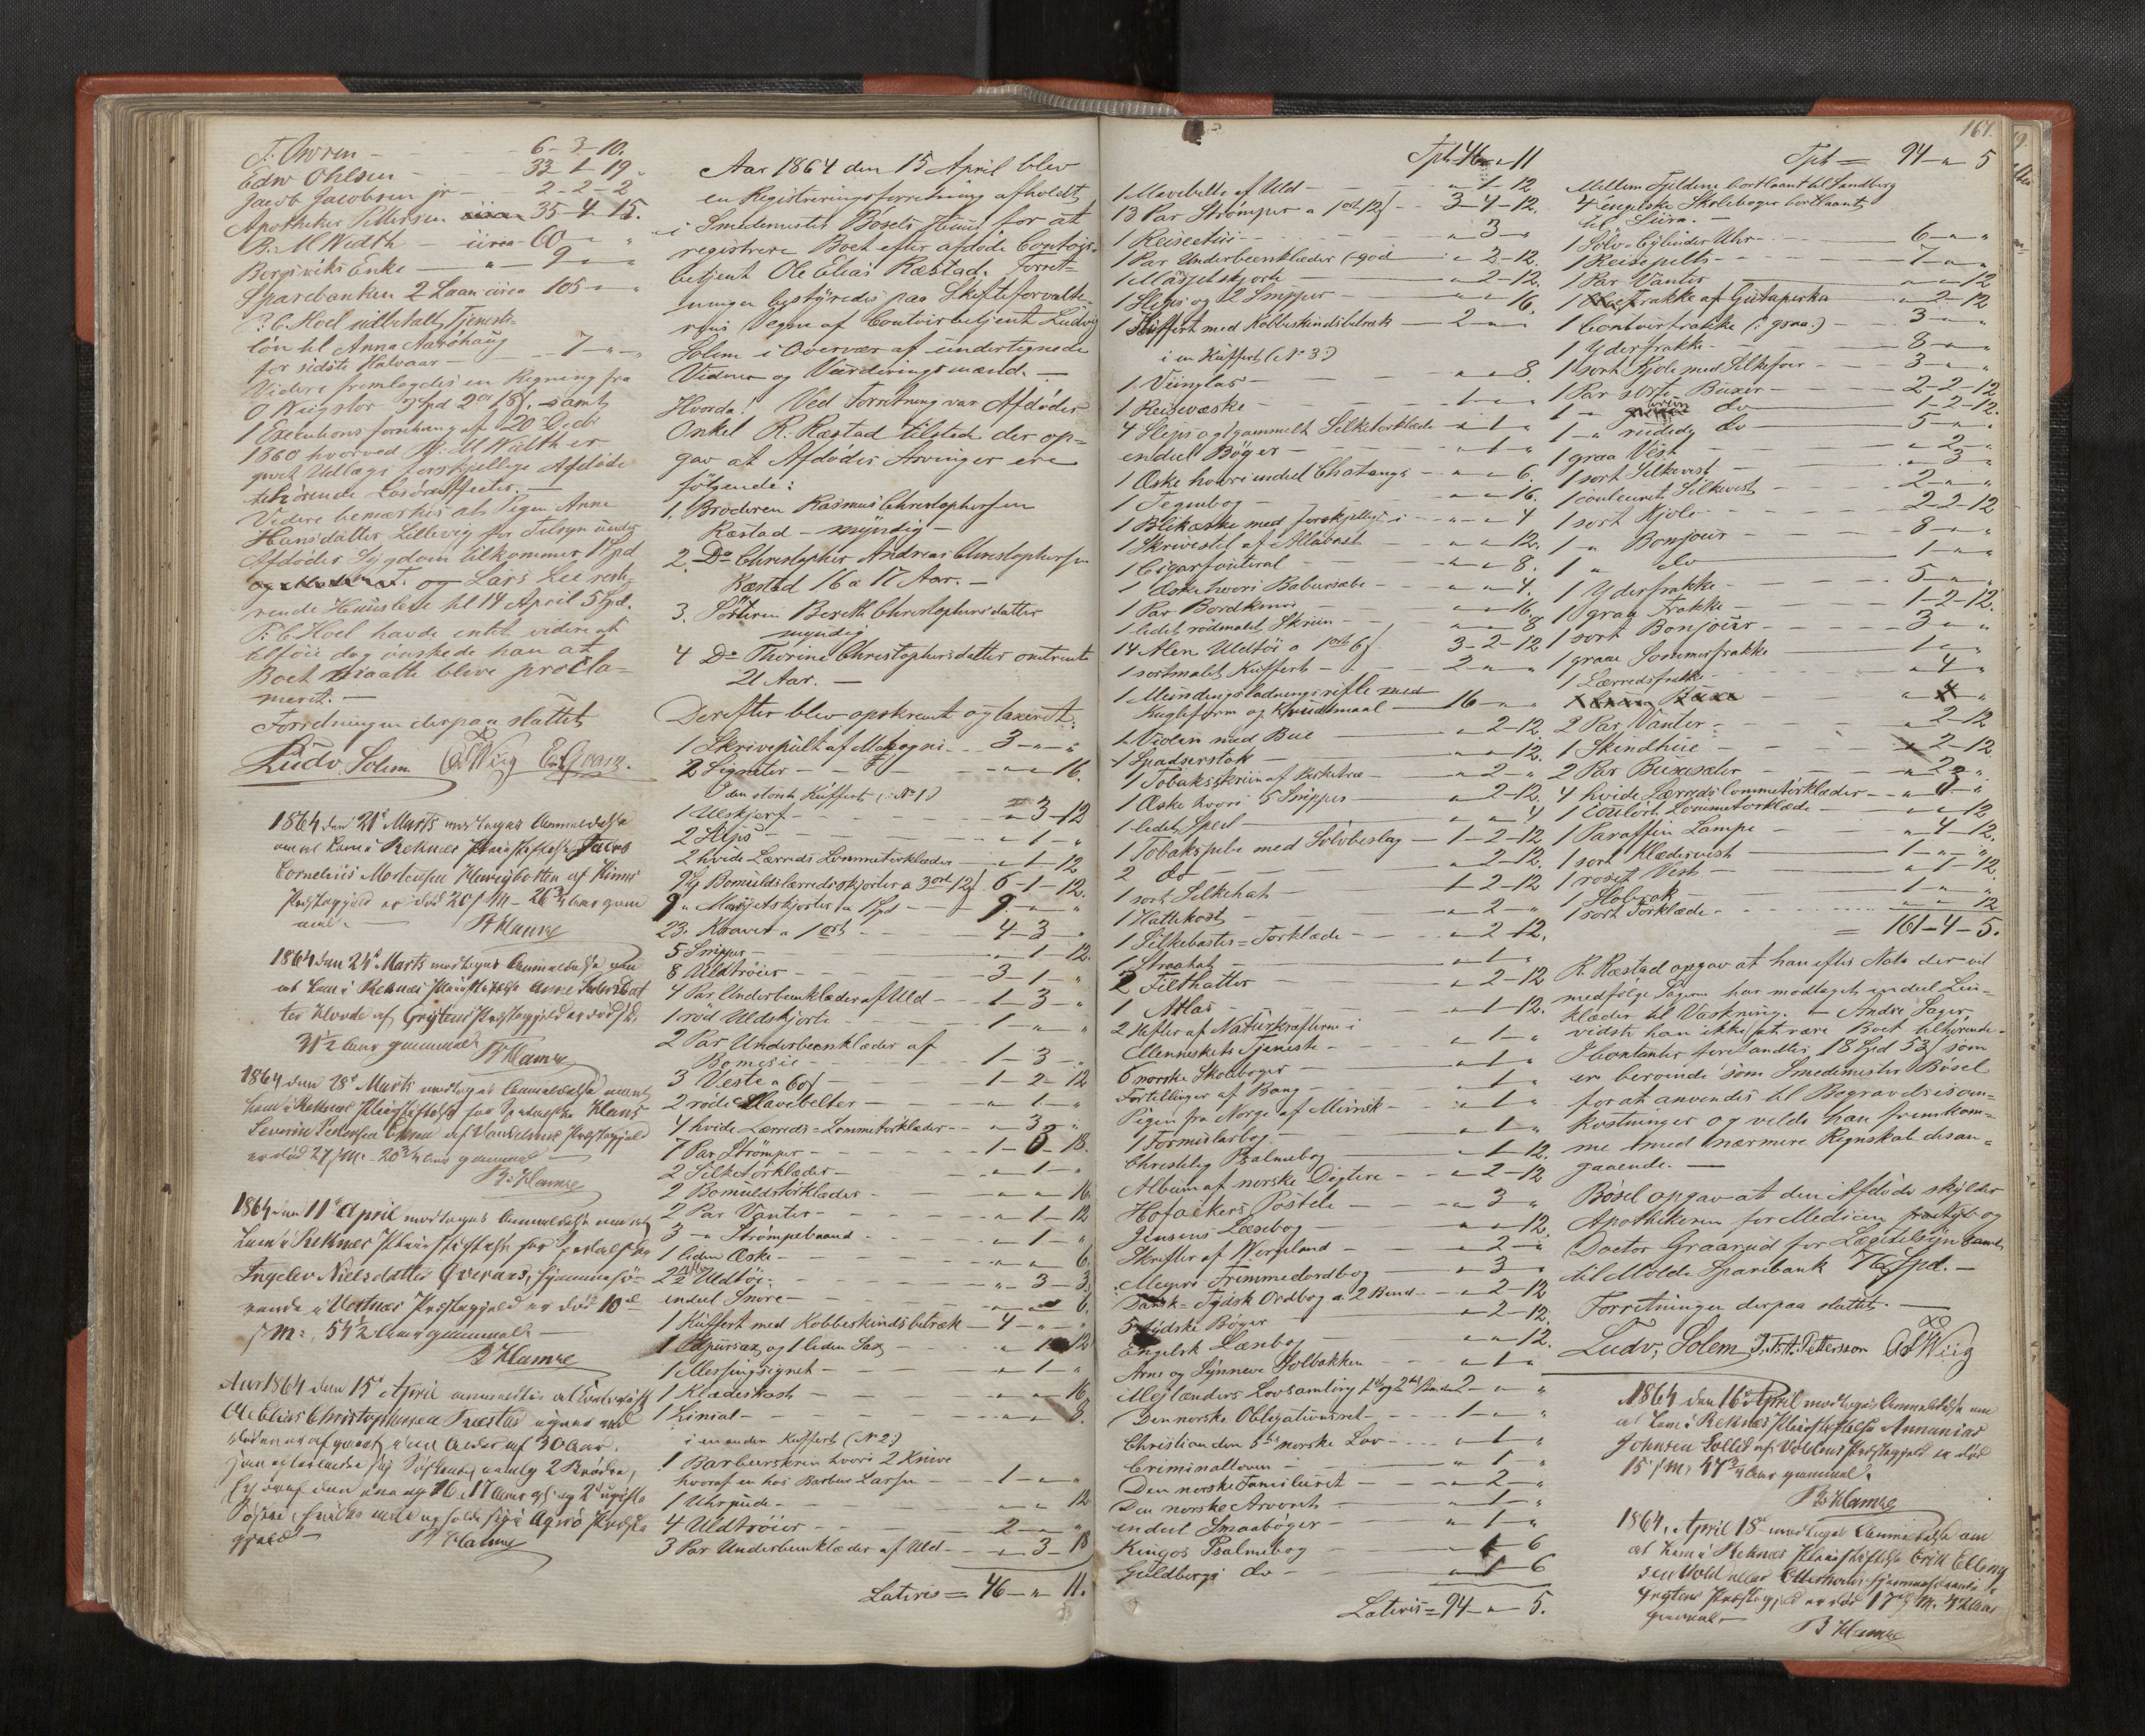 T. Owren - 6-3-10.
Edw Ohlsen - 33-1-19.
Jacob Jacobsen jr - 2-2-2
Apotheker Pettersen 35-4-15.
B. M Width - circa 60 - "
Borgviks Enke - " 9 - "
Sparebanken 2 Laan circa 105 - "
P: C. Hoel udbetalt Tjeneste-
løn til Anna Aarøhaug
for sidste Halvaar - 7 - "
Videre fremlagdes en Regning fra
samt
1 Executionsforretning af 20 Decbr
1860 hvorved M Width er
gjort Udlæg i forskjellige Afdøde
tilhørende Løsøreeffecter. -
Videre bemærkes at Pigen Anne
Hansdatter Lillevig for Tilsyn under
Afdødes Sygdom tilkommer 1 Spd
og Lars Lie reste-
rende Huusleie til 14 April 5 Spd.
P: C. Hoel havde intet videre at
tilføie dog ønskede han at
Boet maatte blive procla-
meret. -
Forretningen derpaa sluttet
Ludv. Solem OWiig
1864 den 21de Marts modtoges Anmeldelse
om at Lem i Reknes Pleiestiftelse Jacob
Cornelius Mortensen af
Præstegjeld er død 20/ M - 26 3/4 Aar gam
mel. -
B Hamre
1864 den 24de Marts modtoges Anmeldelse om
at Lem i Reknes Pleiestiftelse Anne
ter af Grytens Præstegjeld er død
31 1/2 Aar gammel
B Hamre
1864 den 28de Marts modtoges Anmeldelse om at
Lem i Reknes Pleiestiftelse for Spedalske Klaus
Severin af Præstegjeld
er død 27/ M. 20 3/4 Aar gammel
B. Hamre
1864 den 11te April modtoges Anmeldelse om at
Lem i Reknes Pleiestiftelse for Spedalske
Ingelev Nielsdatter hjemmehø-
rende i Vestnes Præstegjeld er død 10de
/ M: 54 1/2 Aar gammel -
B Hamre
Aar 1864 den 15de April anmeldtes at
Ole Elias Christophersen Ræstad
i en Alder af 30 Aar,
Søskende, nemlig 2 Brødre,
den ene og 2 ugifte
Søstre,
gjeld - B Hamre
Aar 1864 den 15 April blev
en Registreringsforretning afholdt
i Smedemester Bøsels Huus for at
registrere Boet efter afdøde Contoir-
betjent Ole Elias Ræstad. Forret-
ningen bestyredes paa Skifteforvalte-
rens Vegne af Contoirbetjent Ludvig
Solem i Overvær af undertegnede
Vidner og Vurderingsmænd. -
Hvorda! Ved Forretning var Afdødes
Onkel R. Ræstad tilstede der op-
gav at Afdødes Arvinger ere
følgende:
1. Broderen Rasmus Christophersen
Ræstad - myndig -
2. Do Christopher Andreas Christophersen
Ræstad 16 a 17 Aar. -
3. Søsteren Bereth Christophersdatter
myndig
4 Do Thorine Christophersdatter omtrent
21 Aar. -
Derefter blev opskrevet og taxeret:
1 Skrivepult af Mahogni - 3 - " - "
2 Signeter - " - " 16.
I den største Kuffert (: No 1)
1 Uldskjerf - " 3-12
2 Slips - " 1 - "
2 hvide Lærreds Lommetørklæder - " 1-12
Bomuldslærredsskjorter a 3 ort 12 s. 6-1-12.
9 " Manjetskjorter a 1 Spd - 9. - " "
23. Kraver a 1 ort - 4-3 "
5 Snipper - " 1-12.
8 Uldtrøier - 3-1 "
4 Par Underbeenklæder af Uld - 1-3 - "
1 rød Uldskjorte - 1 - " "
2 Par Underbeenklæder af
Bomesie - 1-3 - "
3 Veste a 60 s - 1-2-12
2 røde Mavebelter - " 1 - "
4 hvide Lærreds=Lommetørklæder - " 3 "
7 Par Strømper - 1-0-18.
2 Silketørklæder - " 1 - "
2 Bomuldstørklæder - " " 16
2 Par Vanter - " 1-12
3 - " Strømpebaand - " 1 - "
1 liden Æske - " " 6.
2 1/2 Uldtøi - " 3-3.
endeel Snore - " " 6.
1 Kuffert med Kobbeskindsbetræk - 4 - " "
1 Papirsax og 1 liden Sax - 12
1 Messingsignet - " 1 - "
1 Klædeskost - " " 16
1 Linial - " " 8.
i en anden Kuffert (No 2)
1 Barbeerskrin hvori 2 Knive
hvoraf en hos Barbeer Larsen - 1 - "
1 Uhrpude - " " 12
4 Uldtrøier - 2 - " "
3 Par Underbeenklæder af Uld - " 3-18
Lateris = 46 - " 11.
Tpt 46 " 11
1 Mavebelte af Uld - " 1-12
13 Par Strømper a 1 ort 12 s - 3-4-12.
1 Reiseetui - " 3 - "
1 Par Underbeenklæder (-god - " 2-12.
1 Manjetskjorte - " 2-12.
1 Slips og 2 Snipper - " " 16.
1 Kuffert med Kobbeskindsbetræk - 2 - " "
i en Kuffert (No 3)
1. Viinglas - " " 8.
1 Reisevæske - 1 - "
4 Slips og 1 gammelt Silketørklæde - " 1 "
endeel Bøger - " 1 "
1 Æske hvori endeel - " " 6.
1 Tegnebog - " " 16.
1 Blikæske med forskjelligt i - " " 4
1 Skrivestel af Allabast - " " 12.
1 Cigarfouteral - " " 8.
1 Æske hvori Barbeersæbe - " " 4.
1 Par Bordknive - " " 16
1 lidet rødmalet Skriin - " " 8
14 Alen Uldtøi a 1 ort 6 s. 3-2-12
1 sortmalet Kuffert - 2 - " "
1 Mundingsladningsrifle med
Kugleform og Krudtmaal - 16 - " "
1 Violin med Bue - " 2-12.
1 Spadserstok - " " 12.
1 Tobaksskriin af Birketræ - " 2 - "
1 Æske hvori 5 Snipper - " 2-12.
1 lidet Speil - " " 4
1 Tobakspibe med Sølvbeslag - 1-2-12
2 do - " 2-12.
1 sort Silkehat - 1-2-12
1 Hattekost - " 2 - "
1 Silkebastes=Tørklæde - " 2-12,
1 Straahat - " 1 - "
2 Filthatter - " 2-12
1 Atlas - " 1-12.
2 Hefter af Naturkræfterne i
Menneskets Tjeneste - " 1 - "
6 norske Skolebøger - " 1 - "
Fortællinger af Bang - " 1 - "
Pigen fra Norge af - " 1 - "
1 Formularbog - " 1 - "
Christelig Psalmebog - " 1-12.
Album af norske Digtere - " 2-12
Hofackers Postille - " 3 "
Jensens Læsebog - " " 12.
Skrifter af Wergeland - " 2 - "
Meyers Fremmedordbog - " 3 - "
Dansk=Tydsk Ordbog a 2 Bind - " 2-12
5 tydske Bøger - " 2-12.
Engelsk Læsebog - " " 12.
Arne og Synnøve Solbakken - " 1 - "
Mejlænders Lovsamling 1ste og 2det Bind 2 - " "
Den norske Obligationsret - 1 - "
Christian den 5tes norske Lov - " 1 - "
Criminalloven - " 1 - "
Den norske Familieret - " 2 - "
Den norske Arveret - " 1 - "
endeel Smaabøger - " 1 - "
Kingos Psalmebog - " 1-6
Guldbergs do - " 1-6
Lateris = 94 - " 5.
164.
Tpt = 94 - " 5
Mellem Fjeldene bortlaant til Sandberg
4 engelske Skolebøger bortlaant
til
1 Sølv=Cylinder Uhr - 6 - " "
1 Reisepelts - 7 - " "
1 Par Vanter - " " 12
1 Frakke af Gutaperka - " 2-12
1 Contoirfrakke (: graa:) - 3 - " "
1 Yderfrakke - 8 - " "
1 sort Kjole med Silkefoer - 3 - " "
1 Par sorte Buxer - 2-2-12
1 - " do - 1-2-12.
1 - " rudede do - 5 - " "
1 graa Vest - " 2 - "
1 sort Silkevest - " 3 "
1 couleuret Silkevest - 2 - " "
1 sort Kjole - 2-2-12
1 - " Bonjour - 8 - " "
1 " do - 1 - " "
1 Yderfrakke - 5 - " "
1 graa Frakke - 1-2-12.
1 sort Bonjour - 3 - " "
1 graa Sommerfrakke - 1 - "
1 Lærredsfrakke - " 4 - "
2 Par Vanter - " 2-12
1 Skindhue - 2-12
2 Par Buxeseler - " 2 - "
4 hvide Lærreds Lommetørklæder - "
1 coulørt Lommetørklæde - " " 12
1 Paraffin Lampe - " 4-12.
1 sort Klædesvest - 1 - " "
1 roset Vest - " 1-12.
1 Slobrok - 1 - " "
1 sort Tørklæde - " " 12
= 161-4-5.
R. Ræstad opgav at han efter Nota der vil
medfølge Sagen har modtaget endeel Lin-
klæder til Vaskning. - Andre Sager
vidste han ikke at være Boet tilhørende.
I Contanter forefandtes 18 Spd 53 s som
er beroende som Smedemester Bøsel
for at anvendes til Begravelsesom-
kostninger og vilde han fremkom-
me med nærmere Regnskab desan-
gaaende. -
Bøsel opgav at den Afdøde skylder
Apothekeren for Medicin og
Doctor Graarud for Lægetilsyn samt
til Molde Sparebank 76 Spd. -
Forretningen derpaa sluttet. -
Ludv. Solem J. F. A. Pettersson OWiig
1864 den 16de April modtoges Anmeldelse om
at Lem i Reknes Pleiestiftelse Annanias
Johnsen af Voldens Præstegjeld er død
15/ M, 47 3/4 Aar gammel.
B Hamre
1864, April 18de modtoges Anmeldelse om
at Lem i Reknes Pleiestiftelse Erik Elling
sen
Grytens Præstegjeld er død 17de/ M.
gammel -
B Hamre